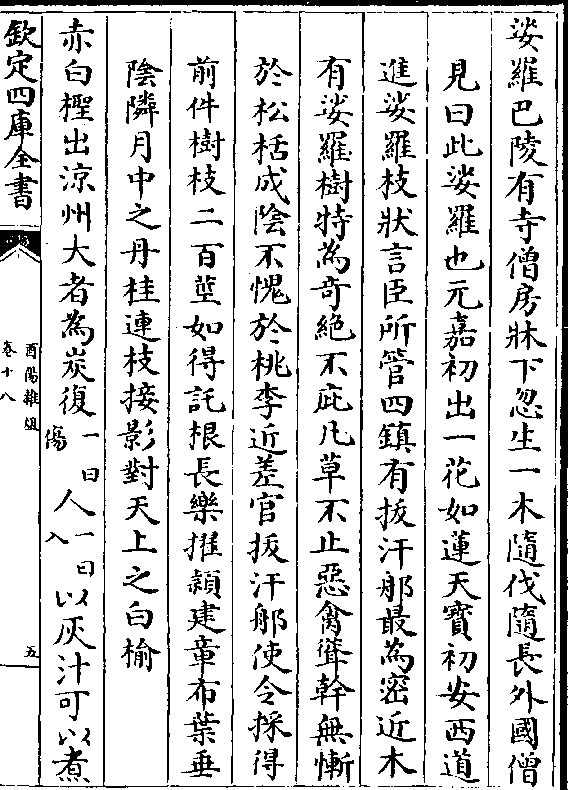 娑羅巴陵有寺僧房牀下忽生一木隨伐隨長外國僧
見曰此娑羅也元嘉初出一花如蓮天寶初安西道
進娑羅枝狀言臣所管四鎮有拔汗那最為密近木
有娑羅樹特為奇絶不庇凡草不止惡禽聳幹無慚
於松栝成陰不愧於桃李近差官拔汗那使令採得
前件樹枝二百莖如得託根長樂擢頴建章布葉垂
陰隣月中之丹桂連枝接影對天上之白榆
赤白檉出涼州大者為炭復一曰傷人一曰入以灰汁可以煮
欽定四庫全書
酉陽雜俎
卷十八
五